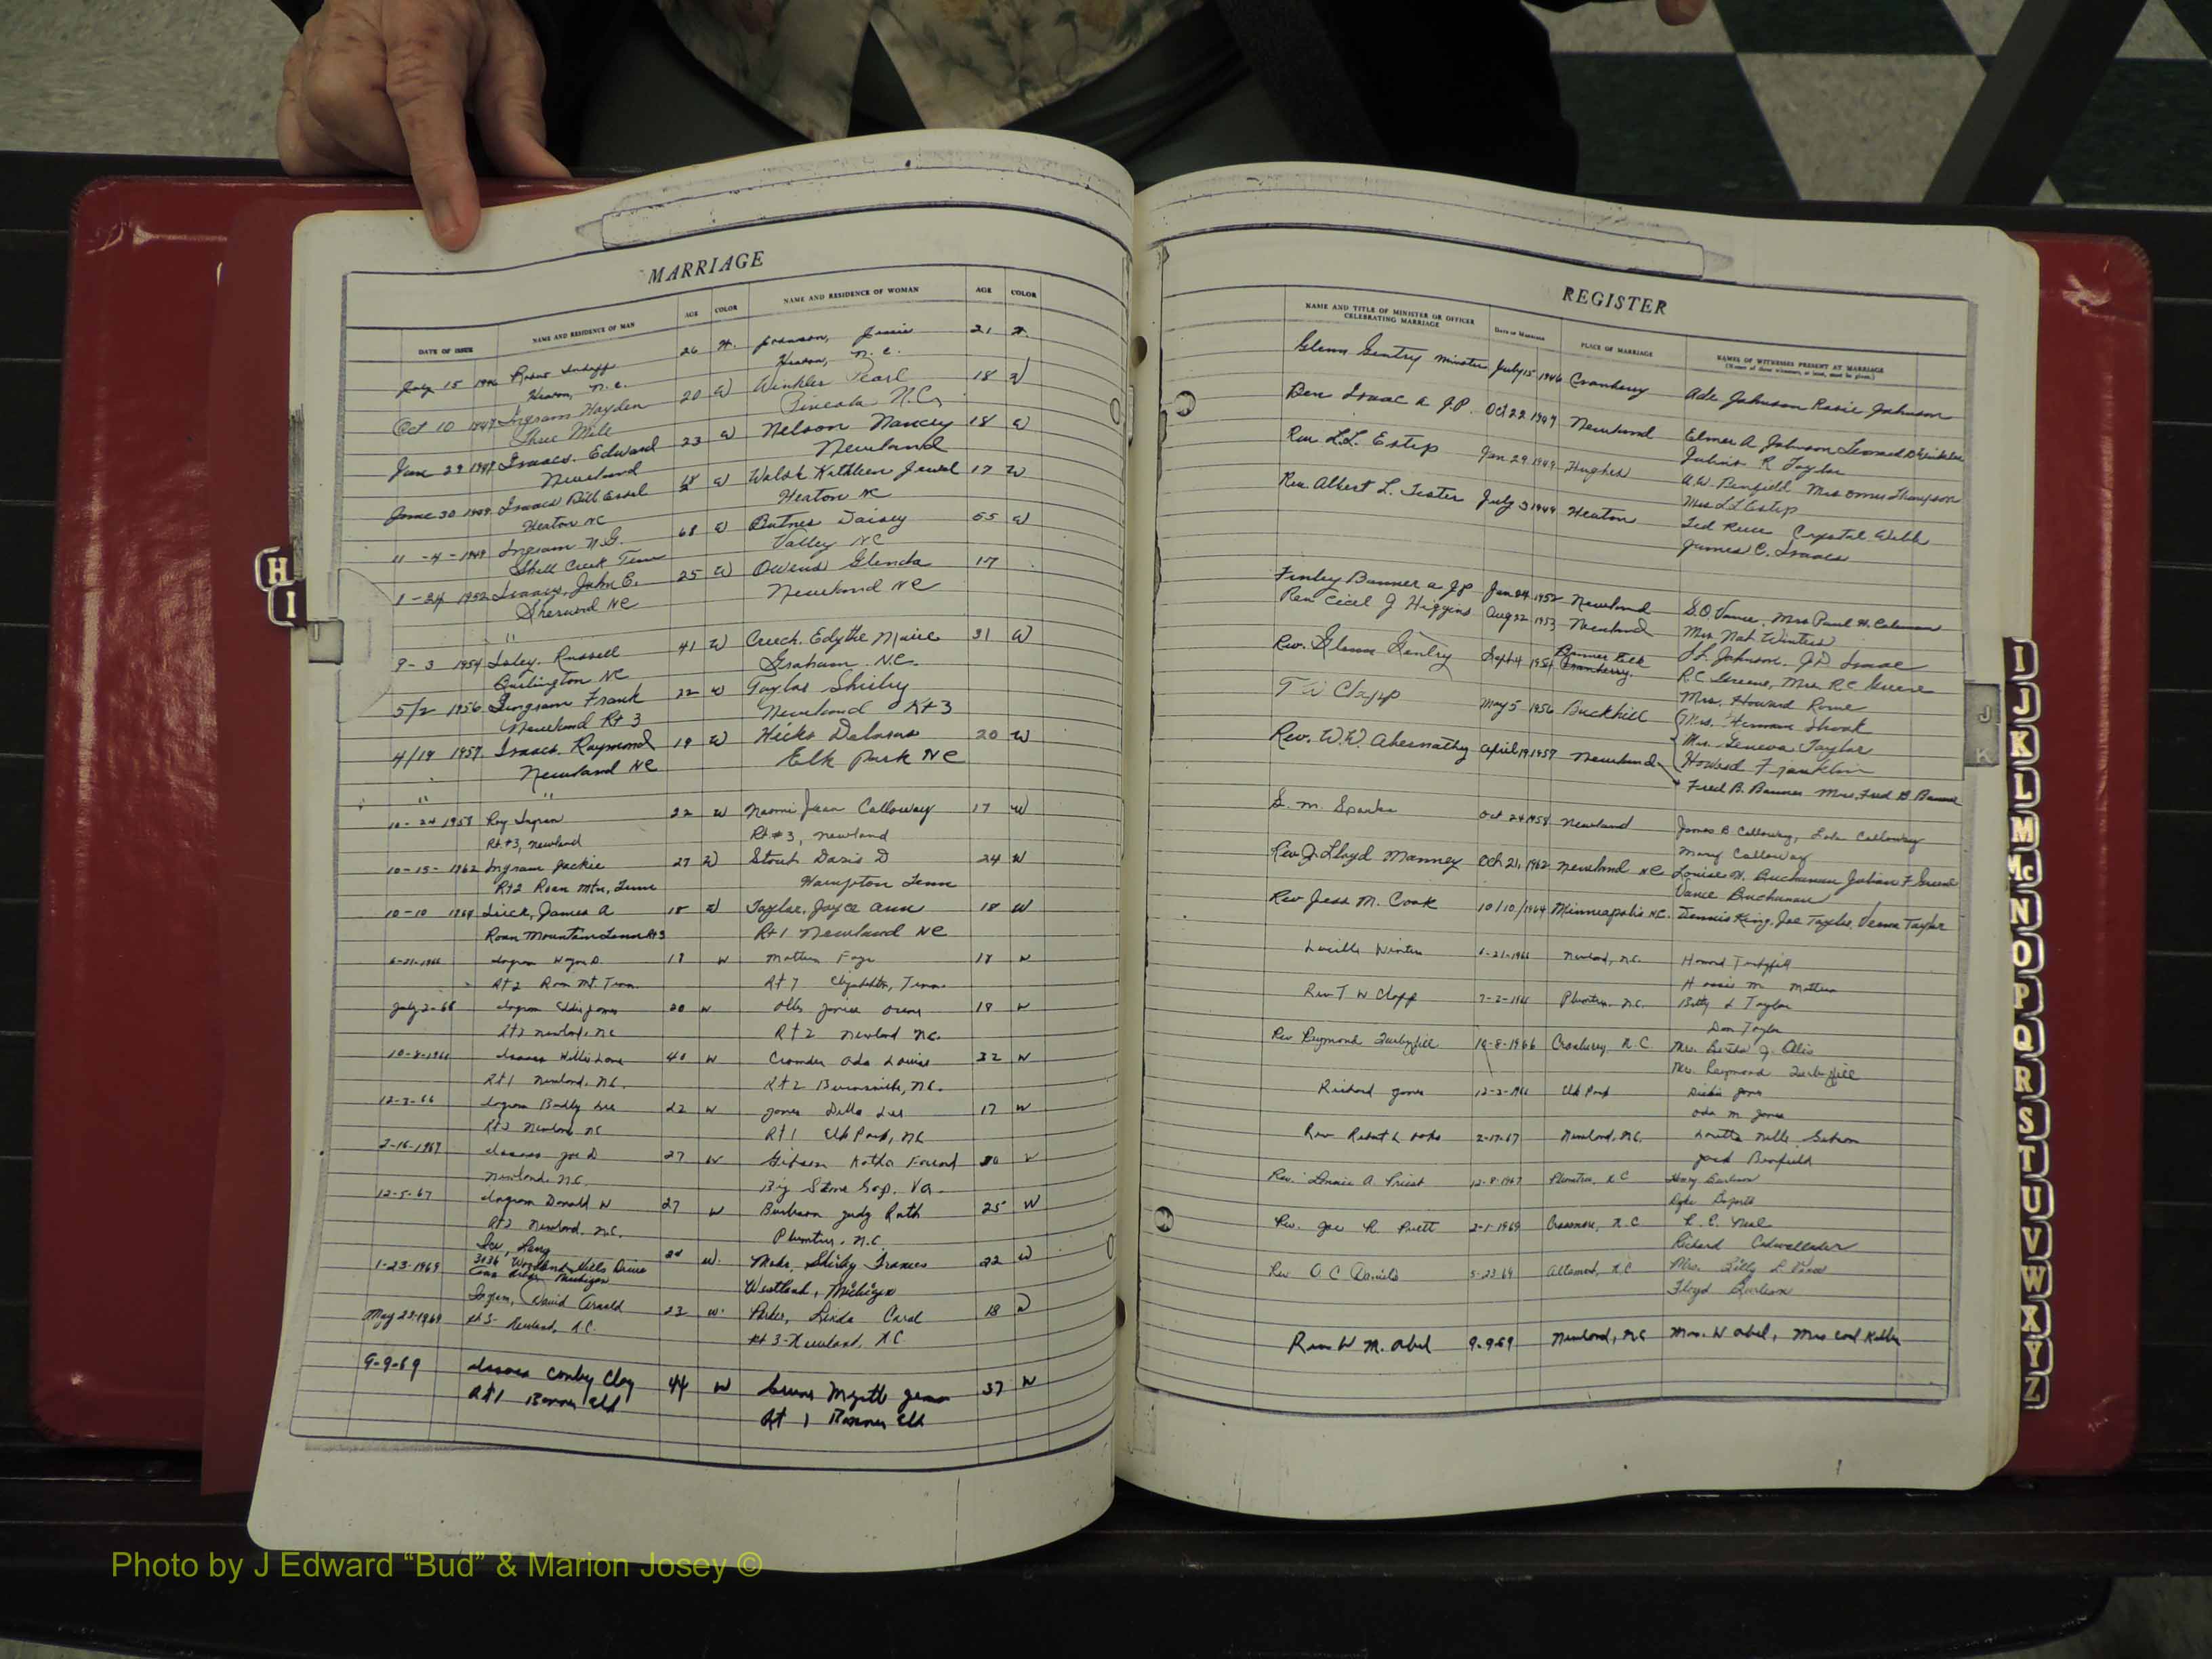 MARRIAGE
DATE OF ISSUE NAME AND RESIDENCE OF MAN AGE COLOR NAME AND RESIDENCE OF WOMAN AGE COLOR
July 15 1946 26 Johnson, Jessie 21
Heaton, N.C. Heaton, N.C.
Oct 10 1947 Ingram Hayden 20 W Winkler Pearl 18 W
Three Mile Pineola N.C.
Jan 29 1949 Isaacs. Edward 23 W Nelson Nancy 18 W
Newland Newland
June 30 1949 Isaacs Bill 18 W Walsh Kathleen Jewel 17 W
Heaton NC Heaton NC
11-4-1949 Ingram N.G. 68 W Daisey 55 W
Shell Creek Tenn Valley NC
1-24 1952 Isaacs, John E. 25 W Owens Glenda 17
Sherwood NC Newland NC
"
9-3 1954 Isley. Russell 41 W Creech. Edythe Marie 31 W
Burlington NC Graham. N.C.
5/2 1956 Ingram Frank 22 W Taylor Shirley
Newland Rt 3 Newland Rt 3
4/19 1957 Isaacs, Raymond 19 W Hicks Deloris 20 W
Newland NC Elk Park NC
" "
10-24 1958 Roy 22 W Naomi Jean Calloway 17 W
Rt #3, Newland Rt #3, Newland
10-15-1962 Ingram Jackie 27 W Stout Doris D 24 W
Rt2 Roan Mtn, Tenn Hampton Tenn
10-10 1964 James A 18 W Taylor, Joyce Ann 18 W
Roan Mountain Tenn Rt3 Rt 1 Newland NC
1966 Ingram Wayne D. 18 W Faye 18 W
Rt 2 Roan Mt. Tenn Rt 7 Elizabethton, Tenn.
July 2-66 Ingram Eddie James 20 W Janice 18 W
Rt2 Newland, NC Rt 2 Newland NC.
10-8-1966 Isaacs Willis 40 W Crowder Ada Louise 32 W
Rt 1 Newland, NC. Rt 2 Burnsville, NC.
12-3-66 Ingram Buddy Lee 22 W Jones Della Lee 17 W
Rt2 Newland NC Rt 1 Elk Park, NC
2-16-1967 Isaacs Joe D 27 W Gibson 30 W
Newland, NC. Big Stone Gap, Va.
12-5-67 Ingram Donald W 27 W Burleson Judy Ruth 25 W
Rt2 Newland, N.C. Plumtree, N.C.
1-23-1969 3036 Woodland Hills Drive W. Shirley Frances 22 W
Ann Arbor Michigan Westland, Michigan
May 22-1969 David Arnold 23 W. Linda Carol 18
Rt 3- Newland, N.C. Rt 3-Newland, N.C
9-9-69 Isaacs Conley Clay 44 W Myrtle 37 W
Rt 1 Banner Elk Rt 1 Banner Elk
REGISTER
NAME AND TITLE OF MINISTER OR OFFICER CELEBRATING MARRIAGE Date of Marriage PLACE OF MARRIAGE NAMES OF WITNESSES PRESENT AT MARRIAGE
(Names of three witnesses, at least, must be given.)
Glenn Gentry Minister July 15 1946 Cranberry Ade Johnson Rosie Johnson
Ben Isaac a J.P. Oct 22 1947 Newland Elmer A Johnson
Julius R Taylor
Rev L.L. Estep Jan 29 1949 Hughes A.W. Benfield Mrs Thompson
Mrs L L Estep
Rev. Albert L. Tester July 3 1949 Heaton Ted Reece Crystal Webb
James C. Isaacs
Finley Banner a J.P Jan 24 1952 Newland S.O. Vance, Mrs Paul H. Coleman
Rev Cecil J Higgins Aug 22 1953 Newland Mrs. Nat Winters
J.L. Johnson, J.D. Isaac
Rev. Glenn Gentry Sept 4 1954 Banner Elk Cranberry. R.C. Greene, Mrs. R C Greene
Mrs. Howard Rome
T W Clapp May 5 1956 Buckhill Mrs. Herman Shook
Mrs. Geneva Taylor
Rev. W.W. Abernathy April 19 1957 Newland Howard Franklin
Fred B. Banner Mrs. Fred B Banner
S. M. Sparks Oct 24 1958 Newland James B Calloway, Lola Calloway
Mary Calloway
Rev J. Lloyd Manney Oct 21, 1962 Newland NC Louise N. Buchanan Julian F Greene
Vance Buchanan
Rev Jess M. Cook 10/10/1964 Minneapolis NC. Dennis King, Joe Taylor, Verna Taylor
Lucille Winters 1966 Newland, N.C. Howard
Rev T W Clapp 7-2-1966 Plumtree, N.C. Betty L Taylor
Don Taylor
Rev Raymond Turbyfill 10-8-1966 Cranberry, N.C. Mrs. Bertha J. Ollis
Mrs. Raymond Turbyfill
Richard Jones 12-3-1966 Elk Park Dickie Jones
Oda M Jones
Rev Robert L 2-17-67 Newland, N.C. Loretta Gibson
Jack Benfield
Rev. Lonnie A. Priest 12-8-1967 Plumtree, N C Burleson
Rev. Joe R. Pruett 2-1-1969 Crossnore, N.C L. C. Neal
Richard Cadwallader
Rev O. C. Daniels 5-23 69 Altamont, N C Mrs. Billy L Vance
Floyd Burleson
Rev W. M. Abel 9-9-69 Newland, NC Mrs. W Abel, Mrs Carl Keller
H
I
J
K
I
J
K
L
M
Mc
N
O
P
Q
R
S
T
U
V
W
X
Y
Z
Photo by J Edward “Bud” & Marion Josey ©